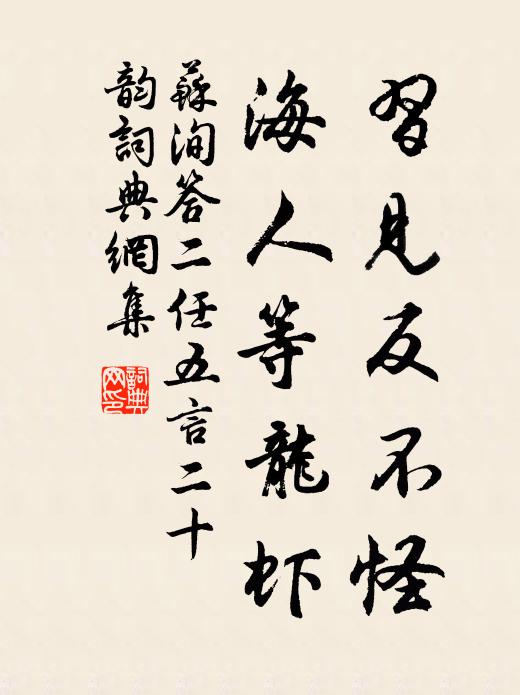 習見反不怪
海人等龍虾
蘇洵答二任五言二十
韵詞典網集
詞典
網印